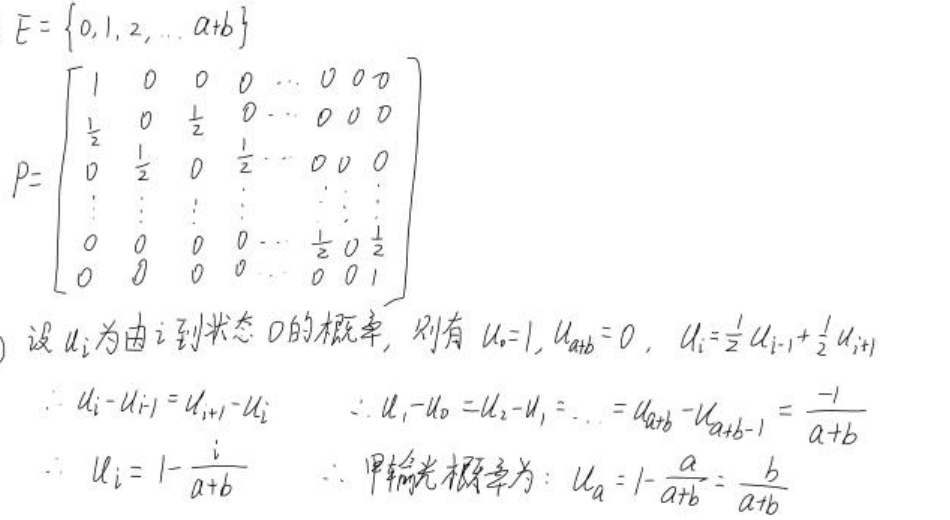 E = {0, 1, 2, ... a+b}
1 0 0 0 ... 0 0 0
1/2 0 1/2 0 ... 0 0 0
P = 0 1/2 0 1/2 ... 0 0 0
⋮ ⋮ ⋮ ⋮ ⋮ ⋮ ⋮
0 0 0 0 ... 1/2 0 1/2
0 0 0 0 ... 0 0 1
) 设 u_i 为由 i 到状态 0 的概率, 则有 u_0=1, u_{a+b}=0, u_i=1/2 u_{i-1}+1/2 u_{i+1}
∴ u_i-u_{i-1}=u_{i+1}-u_i ∴ u_1-u_0=u_2-u_1=...=u_{a+b}-u_{a+b-1}=-1/(a+b)
∴ u_i=1-i/(a+b) ∴ 甲输光概率为: u_a=1-a/(a+b)=b/(a+b)